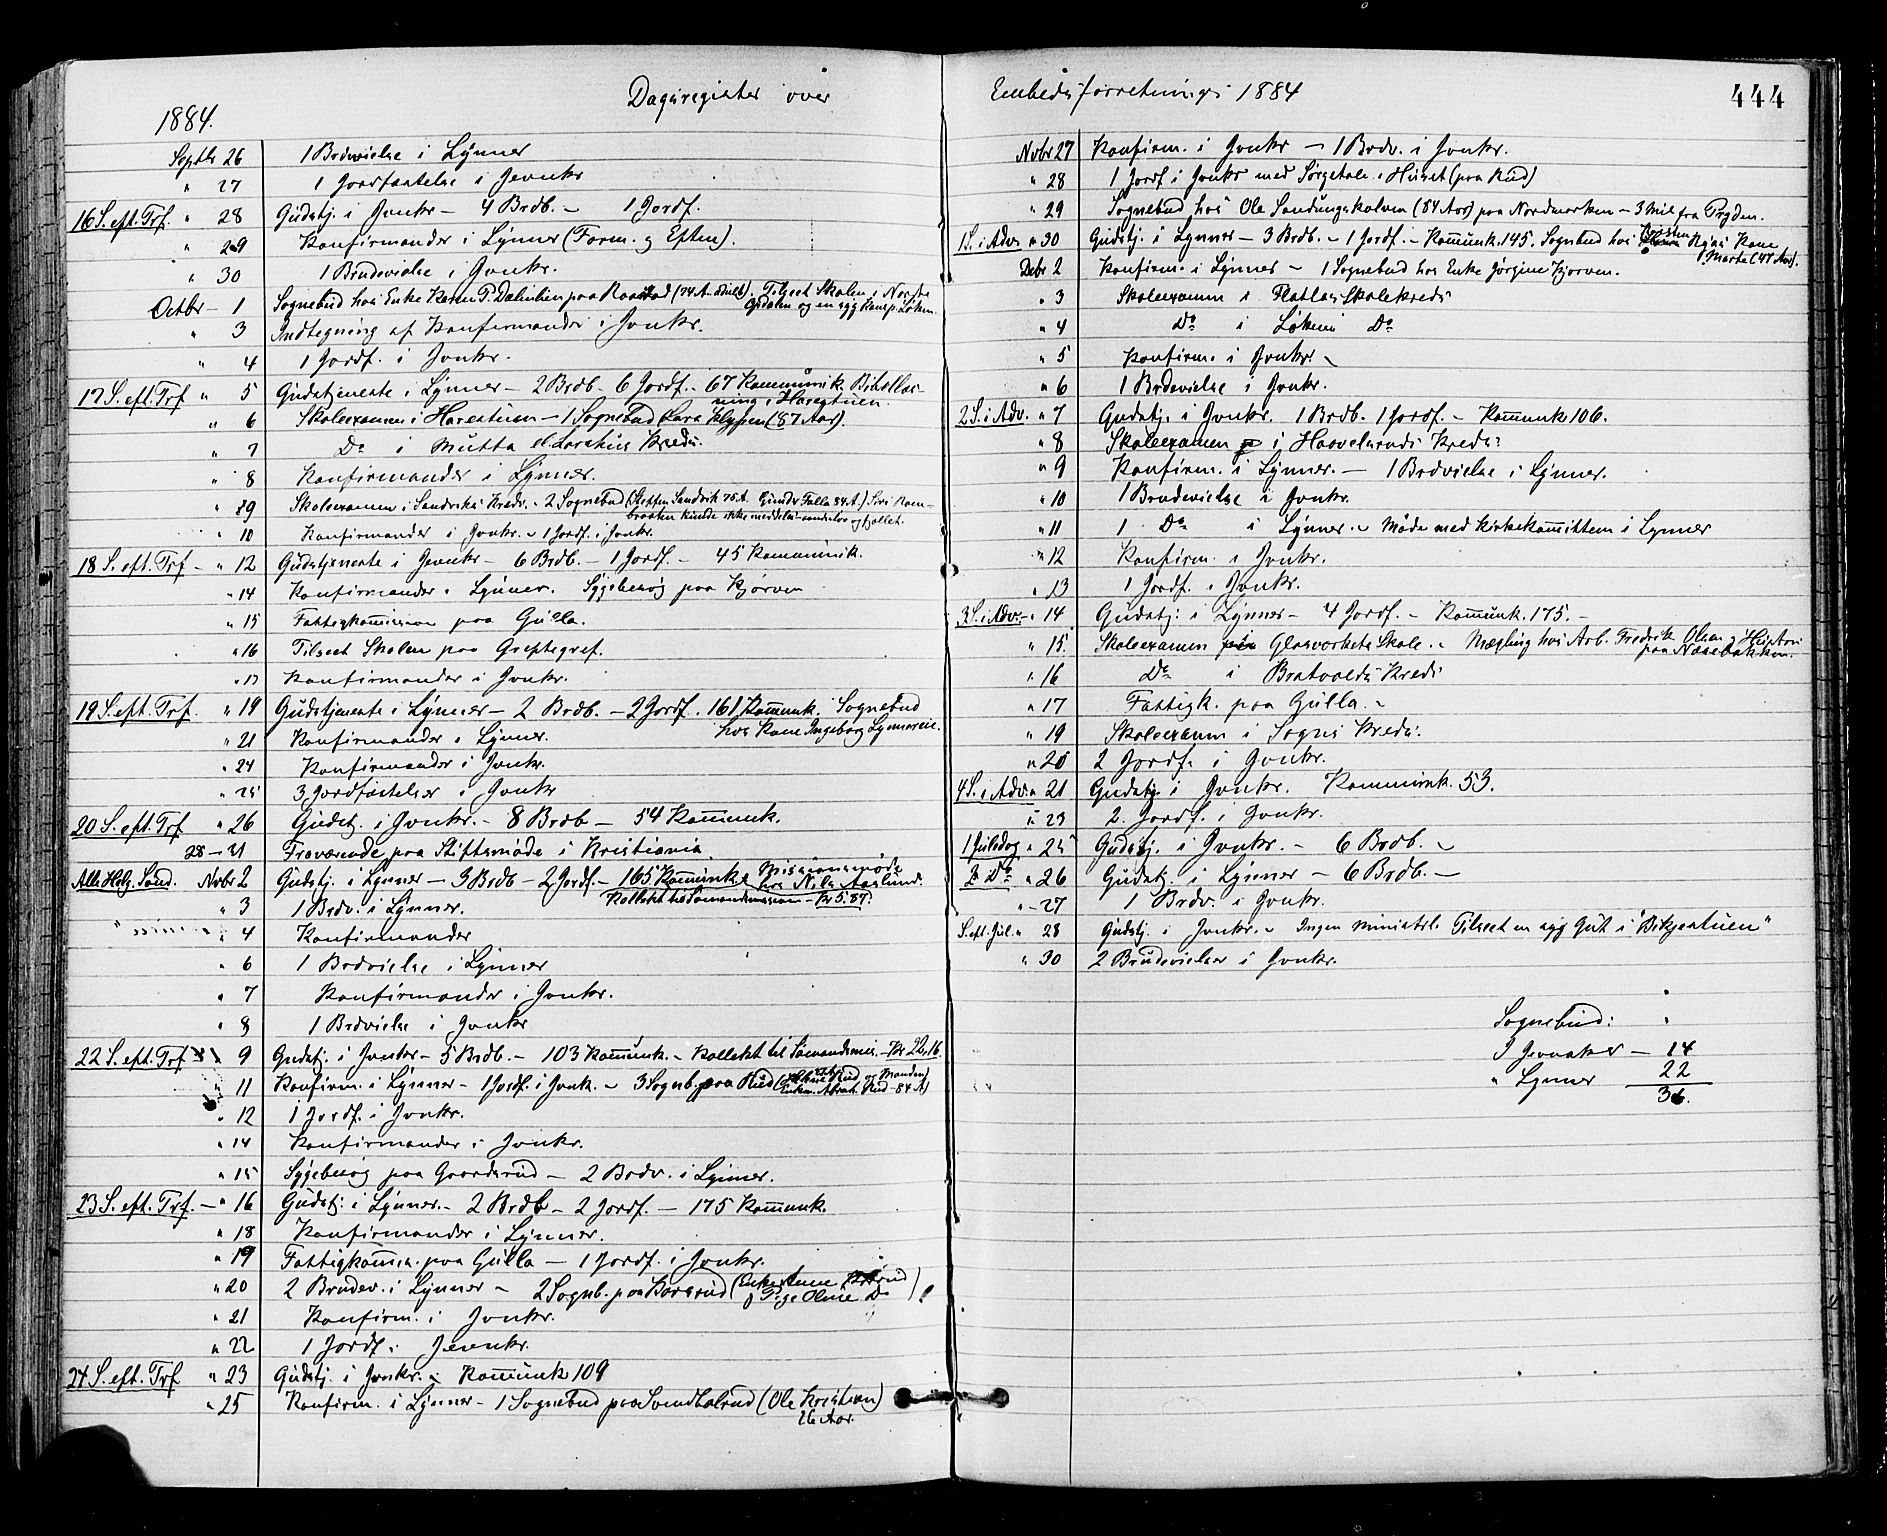 Dagsregister over
1884.
Septbr 26 1 Brdevielse i Lÿnner
" 27 1 Jordfæstelse i Jevnkr
16 S. eft. Trf. " 28 Gudstj. i Jvnkr – 4 Brdb. – 1 Jordf.
" 29 Konfirmander i Lÿnner (Form. og Eftm).
" 30 1 Brudevielse i Jvnkr.
Octbr – 1 Sognebud hos Enke Karen P. Dælenbien paa Raastad (74 A. Tilseet Skolen i Nordre
Opdalen og en syg Løken.
" 3 Indtegning af Konfirmander i Jvnkr.
" 4 1 Jordf. i Jvnkr.
17 S. eft. Trf " 5 Gudstjeneste i Lÿnner – 2 Brdb – 6 Jordf. – 67 Kommunik. Bibellæs-
ning i Harestuen.
" 6 Skoleexamen i Harestuen – 1 Sognebud Lara Klypen (87 Aar).
" 7 Do i Mutta Kreds.
" 8 Konfirmander i Lÿnner.
" 9 Skoleexamen i Sandviks Kreds. – 2 Sognebud (Steffen Sandvik 75 A. Gunder Falla 84 A.) Siri Ram-
braaten kunde ikke meddeles og fjollet.
" 10 Konfirmander i Jvnkr. – 1 Jordf. i Jvnkr.
18 S. eft. Trf – " 12 Gudstjeneste i Jevnkr – 6 Brdb. – 1 Jordf. – 45 Kommunik.
" 14 Konfirmander i Lÿnner. Sygebesøg paa Kjørven
" 15 Fattigkommission paa Gulla.
" 16 Tilseet Skolen paa Greftegref.
" 17 Konfirmander i Jvnkr.
19 S. eft. Trf. " 19 Gudstjeneste i Lÿnner – 2 Brdb. – 2 Jordf. 161 Kommunk. Sognebud
hos Kone Ingeborg Lynnereie.
" 21 Konfirmander i Lÿnner.
" 24 Konfirmander i Jvnkr.
" 25 3 Jordfæstelser i Jvnkr
20 S. eft. Trf " 26 Gudstj. i Jvnkr. – 8 Brdb – 54 Kommunk.
28 – 31 Fraværende paa Stiftsmøde i Kristiania
Alle Helg. Sønd. Novbr 2 Gudstj. i Lÿnner – 3 Brdb – 2 Jordf. – 165 Kommunk. Missionsmøde
hos Nils Aaslund.
Kollekt til Sømandsmission – Kr 5.87.
" 3 1 Brdv. i Lÿnner.
" 4 Konfirmander
" 6 1 Brdvielse i Lÿnner
" 7 Konfirmander i Jvnkr.
" 8 1 Brdvielse i Jvnkr
22 S. eft. Trf " 9 Gudstj. i Jvnkr – 5 Brdb. – 103 Kommunk. – Kollekt til Sømandsmis. – Kr 22,16.
" 11 Konfirm. i Lÿnner – 1 Jordf. i Jvnk. – 3 Sognb. paa Rud ( Rud og Manden)
Enkem. Abrah. Rud – 84 A)
" 12 1 Jordf. i Jvnkr.
" 14 Konfirmander i Jvnkr.
" 15 Sygebesøg paa Gaardsrud – 2 Brdv. i Lÿnner.
23 S. eft. Trf. – " 16 Gudstj. i Lÿnner. – 2 Brdb – 2 Jordf. – 175 Kommunk.
" 18 Konfirmander i Lÿnner.
" 19 Fattigkomm. paa Gulla – 1 Jordf. i Jvnkr.
" 20 2 Brudev. i Lÿnner – 2 Sognb. paa Borsrud (Enke Anne
og Pige Oline Do)
" 21 Konfirm. i Jvnkr.
" 22 1 Jordf. i Jevnkr.
24 S. eft. Trf " 23 Gudstj. i Jvnkr. – Kommunk 109
" 25 Konfirm. i Lÿnner – 1 Sognebud paa Svendbalrud (Ole Kristian)
26 Aar.
Embedsforretninger 1884
444
Novbr 27 Konfirm. i Jvnkr – 1 Brdv. i Jvnkr.
" 28 1 Jordf i Jvnkr med Sørgetale i Huset (paa Rud)
" 29 Sognebud hos Ole Sandungskalven (84 Aar) paa Nordmarken – 3 Mil fra Prgden.
1 S. i Adv. " 30 Gudstj. i Lynner – 3 Brdb. – 1 Jordf. – Kommunk. 145. Sognebud hos Kone
Marte (47 Aar).
Debr 2 Konfirm. i Lÿnner – 1 Sognebud hos Enke Jørgine Kjørven.
" 3 Skoleexamen i Flatlas Skolekreds
" 4 Do i Løkens Do
" 5 Konfirm. i Jvnkr. –
" 6 1 Brdevielse i Jvnkr.
2 S. i Adv. " 7 Gudstj. i Jvnkr. 1 Brdb. 1 Jordf. – Kommunk 106.
" 8 Skoleexamen i Haavelsruds Kreds
" 9 Konfirm. i Lÿnner. – 1 Brdvielse i Lÿnner.
" 10 1 Brudevielse i Jvnkr.
" 11 1 Do i Lÿnner. – Møde med Kirkekommitteen i Lynner
" 12 Konfirm. i Jvnkr.
" 13 1 Jordf. i Jvnkr.
3 S. i Adv. – " 14 Gudstj. i Lÿnner – 4 Jordf. – Kommunk. 175. –
" 15. Skoleexamen Glasverkets Skole. – Mægling hos Arb. Fredrik Olsen og Hustru
paa Næsebakken.
" 16 Do i Bratvolds Kreds
" 17 Fattigk. paa Gulla. –
" 19 Skoleexamen i Sogns Kreds.
" 20 2 Jordf. i Jvnkr.
4 S. i Adv. " 21 Gudstj. i Jvnkr. Kommunk. 53.
" 23 2. Jordf. i Jvnkr.
1 Juledag " 25 Gudstj. i Jvnkr. – 6 Brdb. –
2 Do " 26 Gudstj. i Lÿnner – 6 Brdb. –
" – 27 1 Brdv. i Jvnkr.
S. eft. Jul. " 28 Gudstj. i Jvnkr. – Ingen Ministrl. Tilseet en syg Gut i "Bikjestuen"
" 30 2 Brudevielser i Jvnkr.
Sognebud:
I Jevnaker – 14
" Lynner 22
36.